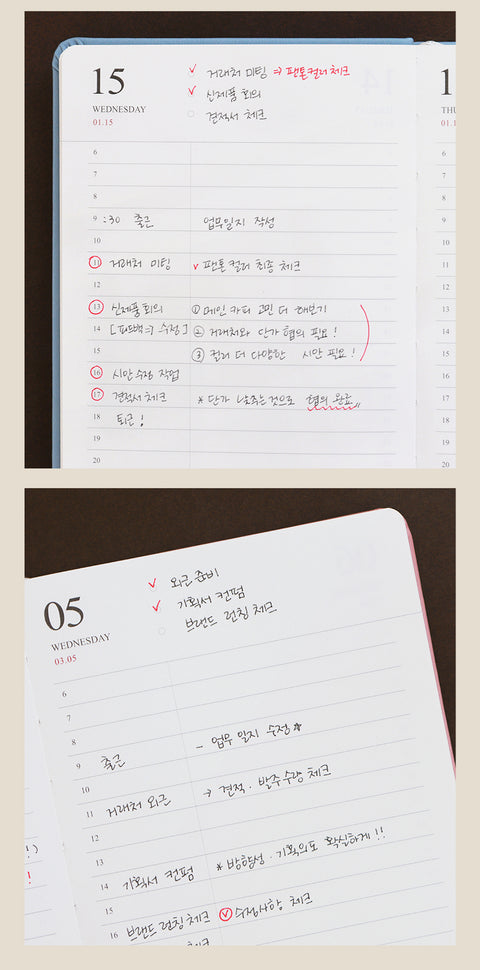 15
WEDNESDAY
01.15
✓ 거래처 미팅 ⇒ 팬톤컬러 체크
✓ 신제품 회의
견적서 체크
6
7
8
9 :30 출근 업무일지 작성
10
11 거래처 미팅 ✓ 팬톤컬러 최종 체크
12
13 신제품회의 ① 메인 카피 고민 더 해보기
14 [피드백⇒수정] ② 거래처와 단가 협의 필요!
15 ③ 컬러 더 다양한 시안 필요!
16 시안수정 작업
17 견적서체크 * 단가 낮추는것으로 협의 완료
18 퇴근!
19
20
1
THU
01.1
05
WEDNESDAY
03.05
✓ 외근 준비
✓ 기획서 컨펌
브랜드 런칭 체크
6
7
8
9 출근 - 업무 일지 수정 ★
10
11 거래처 외근 → 견적·발주수량 체크
12
13
14 기획서 컨펌 * 방향성·기획의도 확실하게!!
15
16 브랜드런칭체크 ✓ 수정사항 체크